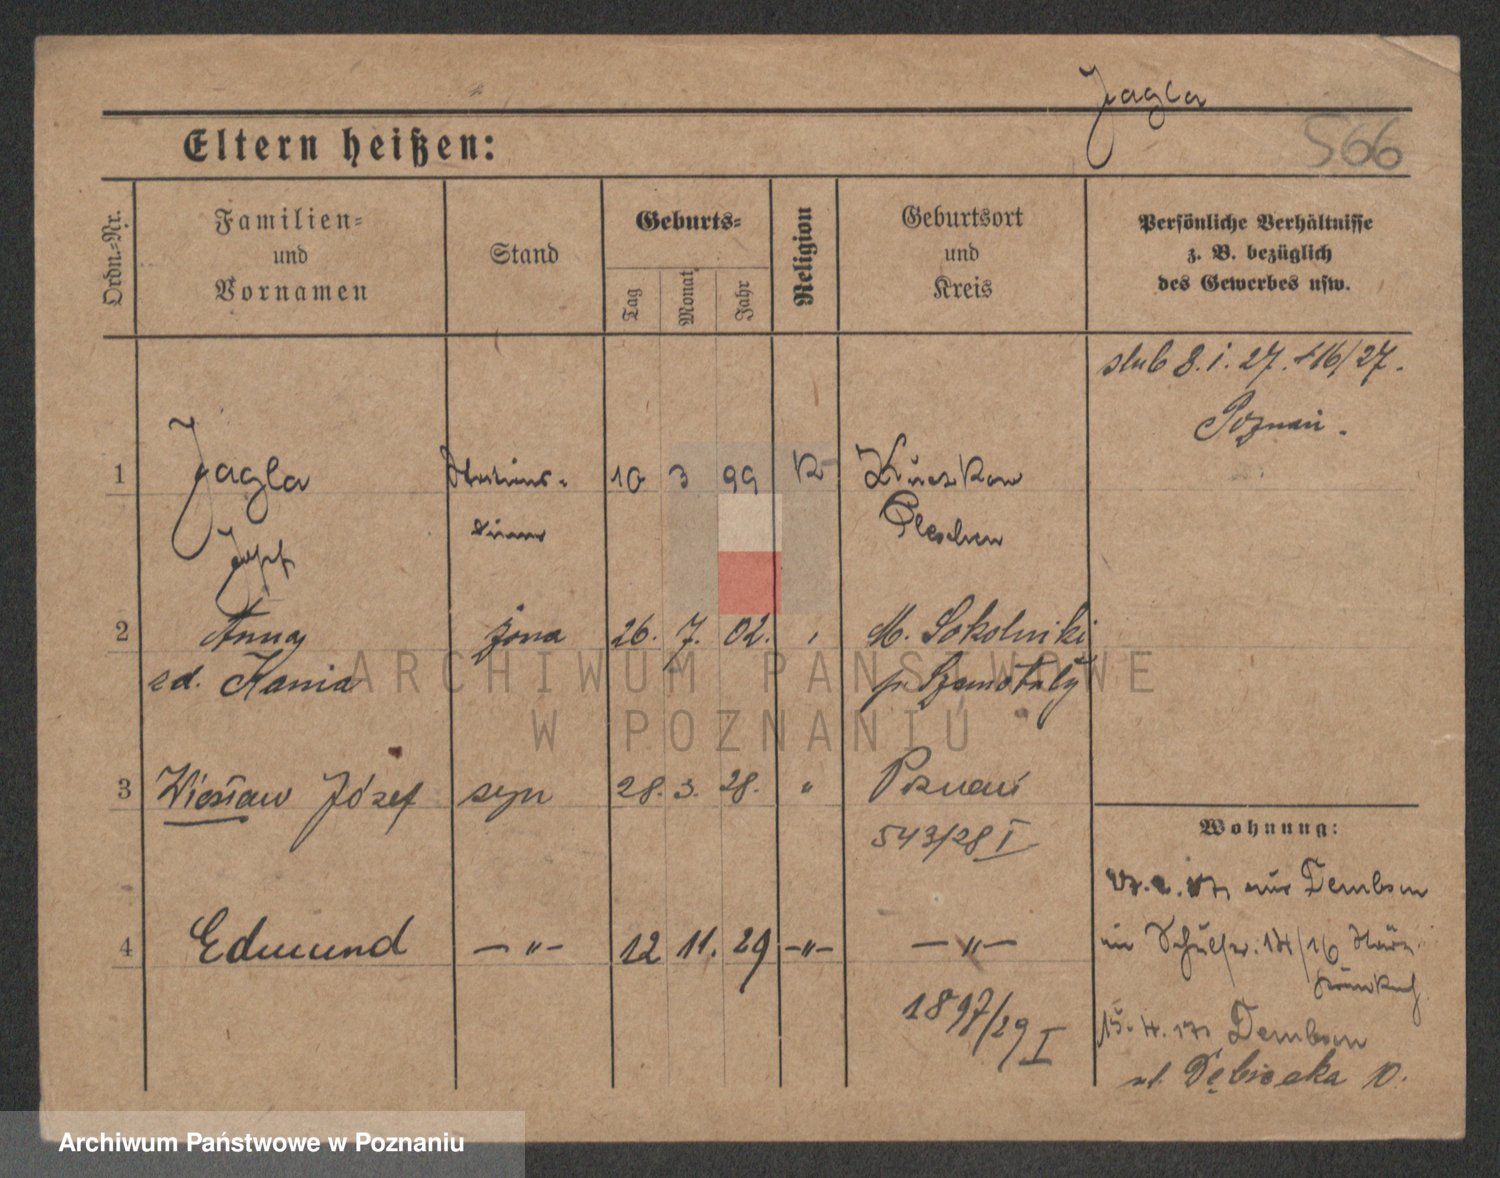 Jagla
566
Eltern heißen:
Ordn.=Nr.
Familien=
und
Vornamen
Stand
Geburts=
Tag
Monat
Jahr
Religion
Geburtsort
und
Kreis
Persönliche Verhältnisse
z. B. bezüglich
des Gewerbes usw.
ślub 8. i. 27. 416/27.
Poznań.
1 Jagla 10 3 99 K
Pleschen
Josef
2 Anna żona 26. 7. 02. " M. Sokolniki
zd. Kania p. Szamotuły
3 Wiesław Józef syn 28. 3. 28. " Poznań
543/28 I
Wohnung:
Dembsen
4 Edmund —"— 12 11. 29 —"— —"—
1897/29 I
Dembsen
ul. Dębiecka 10.
ARCHIWUM PAŃSTWOWE
W POZNANIU
Archiwum Państwowe w Poznaniu